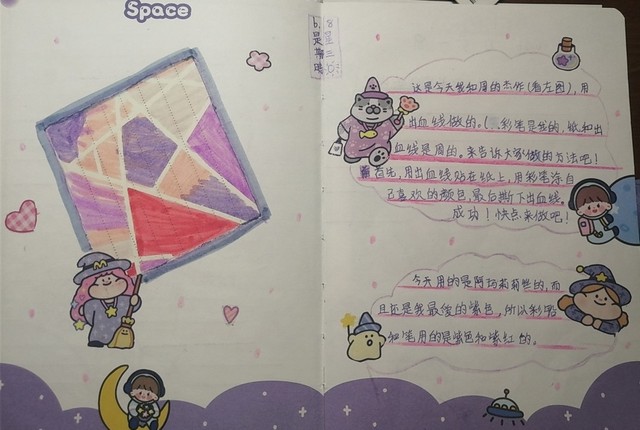 Space
6.8
星期三
晴
这是今天我和周的杰作(看左图),用
出血线做的。(彩笔是我的,纸和出
血线是周的。来告诉大家做的方法吧!
首先,用出血线贴在纸上,用彩笔涂自
己喜欢的颜色,最后撕下出血线。
成功!快点来做吧!
今天用的是阿巧莉莉丝的,而
且还是我最爱的紫色,所以彩
和笔用的是紫色和紫红的。